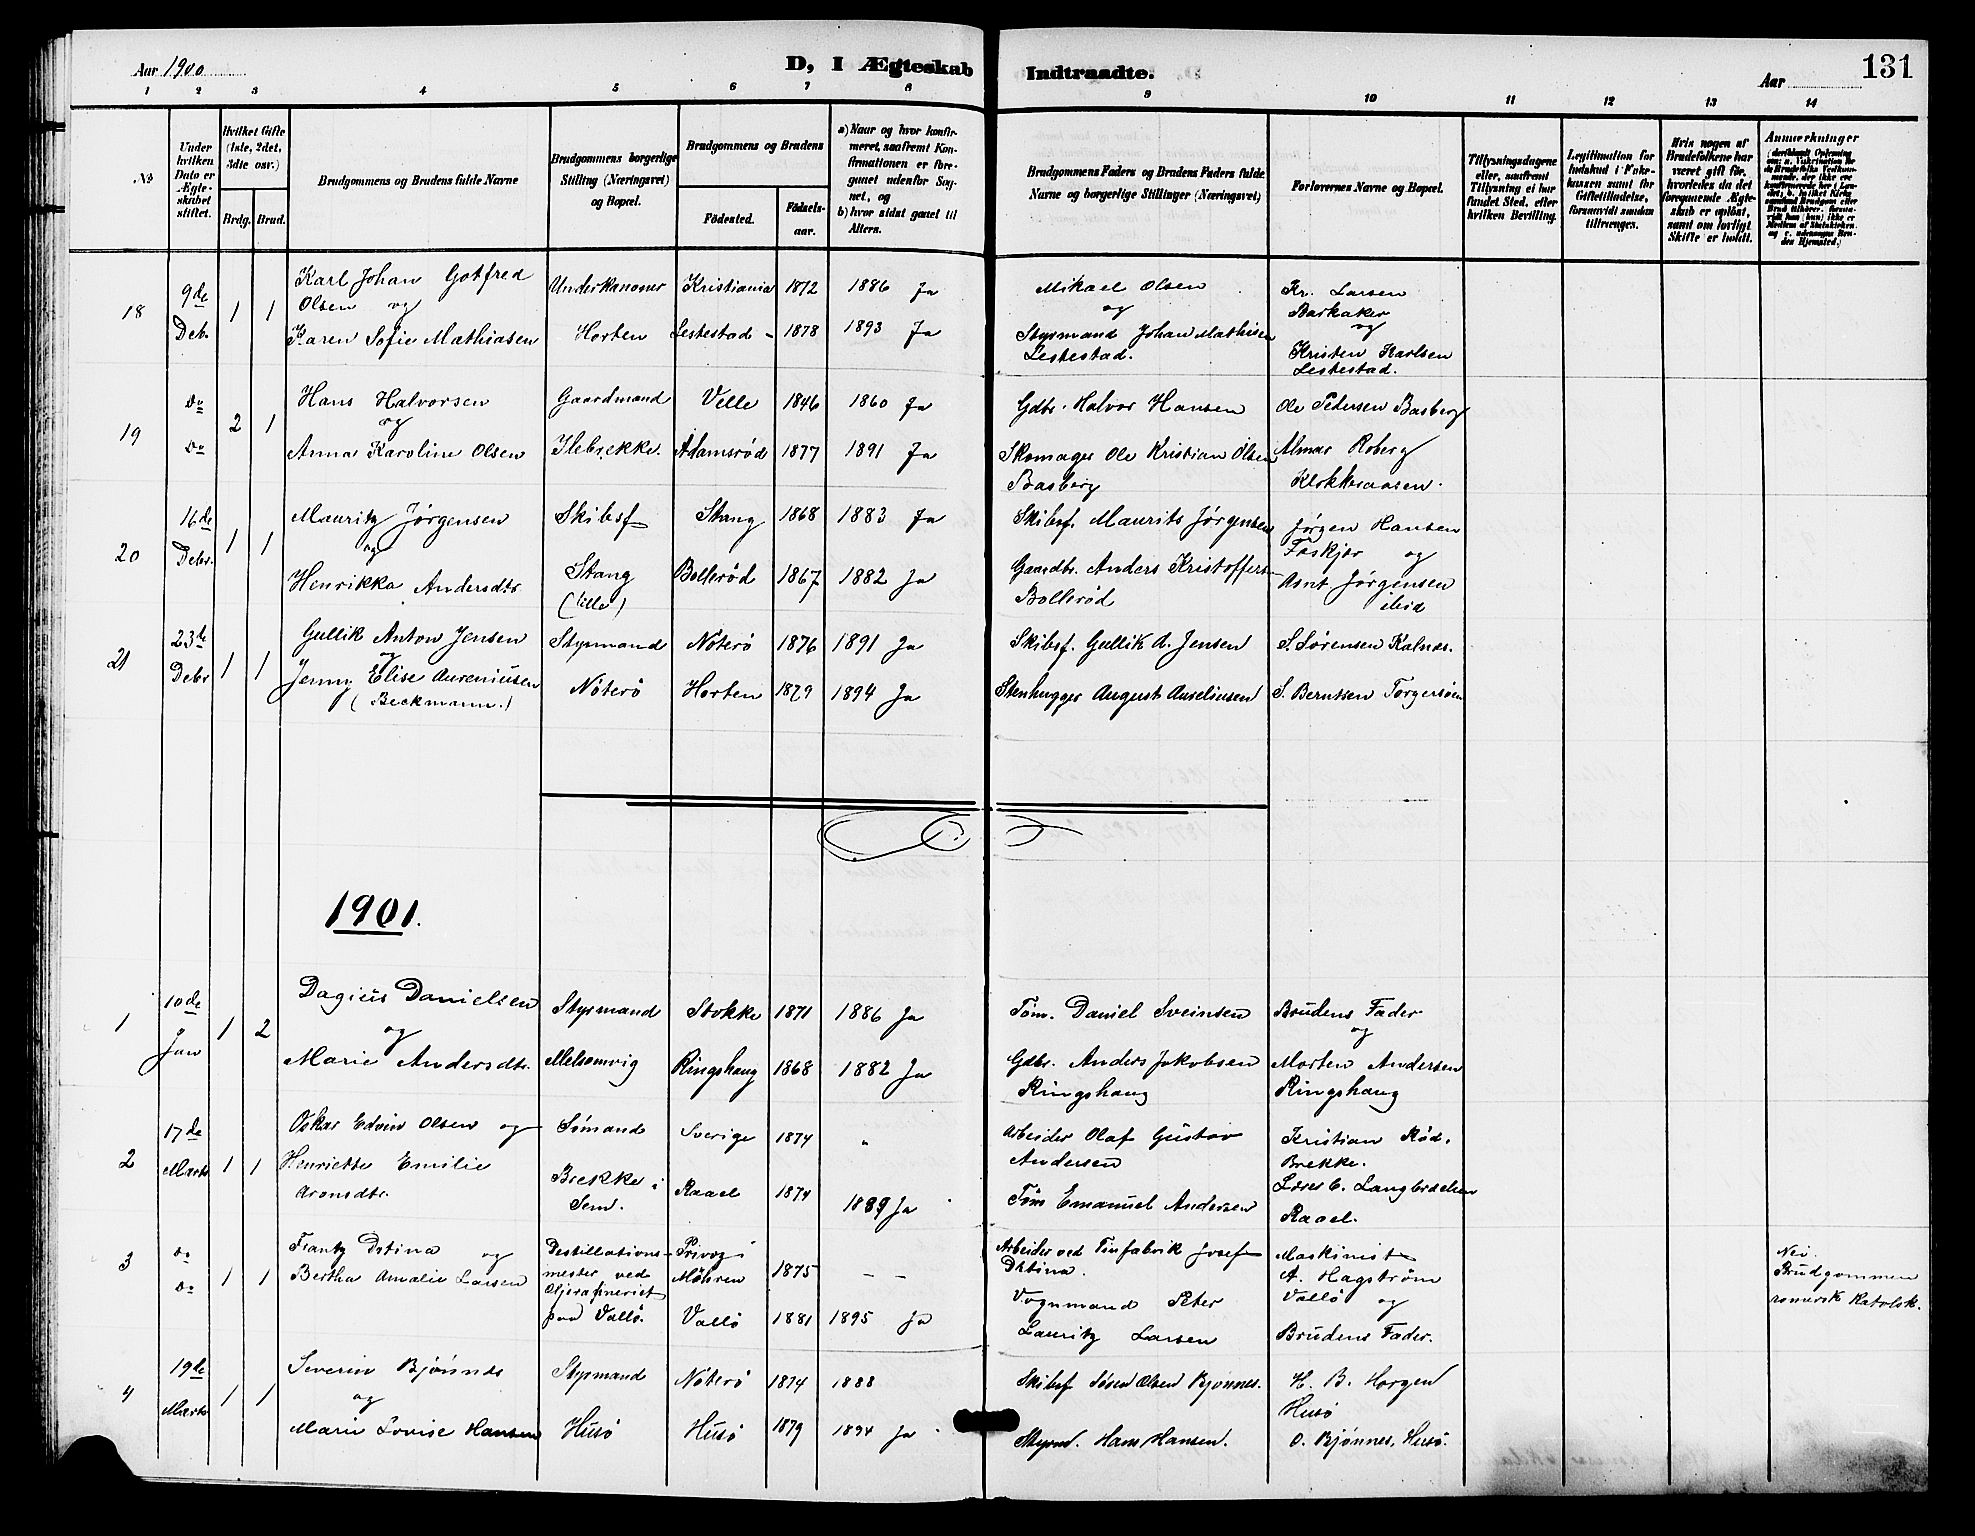 Aar 1900
D, I Ægteskab
Indtraadte.
Aar
131
1 2 3 4 5 6 7 8 9 10 11 12 13 14
No
Under hvilken Dato er Ægteskabet stiftet.
Hvilket Gifte (1ste, 2det, 3die osv.)
Brdg. Brud.
Brudgommens og Brudens fulde Navne
Brudgommens borgerlige Stilling (Næringsvei) og Bopæl.
Brudgommens og Brudens
Födested.
Födselsaar.
a) Naar og hvor konfirmeret, saafremt Konfirmationen er foregaaet udenfor Sognet, og
b) hvor sidst gaaet til Alters.
Brudgommens Faders og Brudens Faders fulde Navne og borgerlige Stillinger (Næringsvei)
Forlovernes Navne og Bopæl.
Tillysningsdagene eller, saafremt Tillysning ei har fundet Sted, efter hvilken Bevilling.
Legitimation for Indskud i Enkekassen samt for Giftetilladelse, forsaavidt saadan tiltrænges.
Hvis nogen af Brudefolkene har været gift för, hvorledes da det foregaaende Ægteskab er oplöst, samt om lovligt Skifte er holdt.
Anmærkninger
18 9de Debr. 1 1
Karl Johan Gotfred
Olsen og
Karen Sofie Mathiasen
Underkanoner
Horten
Kristiania 1872 1886 Ja
Lestestad 1878 1893 Ja
Mikael Olsen
og
Styrmand Johan Mathisen
Lestestad.
Kr. Larsen
Barkaker
og
Kristen Karlsen
Lestestad.
19 Do Do 2 1
Hans Halvorsen
og
Anna Karoline Olsen
Gaardmand
Ilebrekke.
Velle 1846 1860 Ja
Adamsrød 1877 1891 Ja
Gdbr. Halvor Hansen
Skomager Ole Kristian Olsen
Basberg
Ole Pedersen Basberg
Almar Roberg
Klokkeraasen.
20 16de Debr. 1 1
Mauritz Jørgensen
og
Henrikka Andersdtr
Skibsf
Stang
(lille)
Stang 1868 1883 Ja
Bollerød 1867 1882 Ja
Skibsf. Maurits Jørgensen
Gaardbr. Anders Kristoffers
Bollerød
Jørgen Hansen
Faskjør og
Asnt Jørgensen
ibid
21 23de Debr 1 1
Gullik Anton Jensen
og
Jenny Elise Aureniusen
(Beckmann.)
Styrmand
Nøterø
Nøterø 1876 1891 Ja
Horten 1879 1894 Ja
Skibsf. Gullik A. Jensen
Stenhugger August Aureliusen
S. Sørensen Kalnæs.
S. Berntsen Torgersøen
1901.
1 10de Jan 1 2
Dagius Danielsen
og
Marie Andersdtr.
Styrmand
Melsomvig
Stokke 1871 1886 Ja
Ringshaug 1868 1882 Ja
Tøm. Daniel Sveinsen
Gdbr. Anders Jakobsen
Ringshaug
Brudens Fader
og
Morten Andersen
Ringshaug
2 17de Marts 1 1
Oskar Edvin Olsen og
Henriette Emilie
Aronsdtr.
Sømand
Brekke i
Sem.
Sverige 1874 "
Raael 1874 1889 Ja
Arbeider Olaf Gustav
Andersen
Tøm Emanuel Andersen
Kristian Rød.
Brekke.
Raael.
3 Do Do 1 1
Frantz Dìtina og
Bertha Amalie Larsen
Destillations-
mester ved
Oljerafineriet
paa Vallø.
Privoz i
Möhren 1875 — —
Vallø 1881 1895 Ja
Arbeider ved Tinfabrik Josef
Dìtina.
Vognmand Peter
Lauritz Larsen
Maskinist
A. Hagstrøm
Vallø og
Brudens Fader.
Nei.
Brudgommen
romersk Katolsk.
4 19de Marts 1 1
Severin Bjønnes
og
Marie Lovise Hansen
Styrmand
Husø
Nøterø 1874 1888
Husø 1879 1894 Ja
Skibsf Søren Olsen Bjønnes.
Styrm. Hans Hansen.
H. B. Horgen
Husø
O. Bjønnes, Husø.